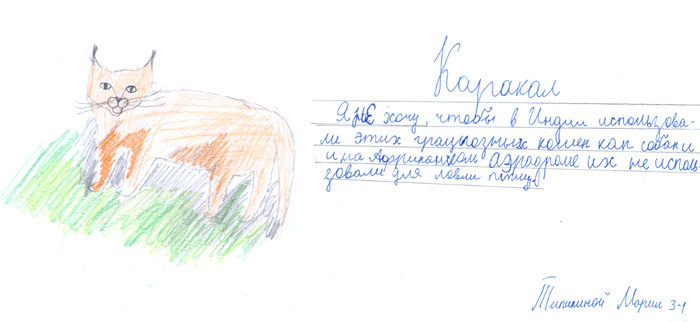 Каракал
Я НЕ хочу, чтобы в Индии использова-
ли этих грациозных кошек как собаки
и на Африканском аэродроме их не исполь-
зовали для ловли птицы
Типикиной Марии 3-1